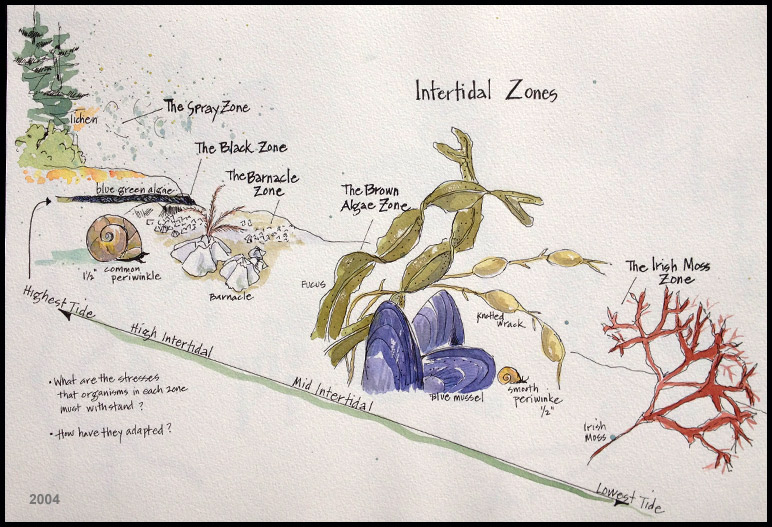 Intertidal Zones
lichen
The Spray Zone
The Black Zone
The Barnacle
Zone
blue green algae
The Brown
Algae Zone
1/2" common
periwinkle
Barnacle
Fucus
knotted
wrack
The Irish Moss
Zone
Highest Tide
High Intertidal
Mid Intertidal
Blue mussel
smooth
periwinkle
1/2"
Irish
Moss
Lowest Tide
• What are the stresses
that organisms in each zone
must withstand?
• How have they adapted?
2004